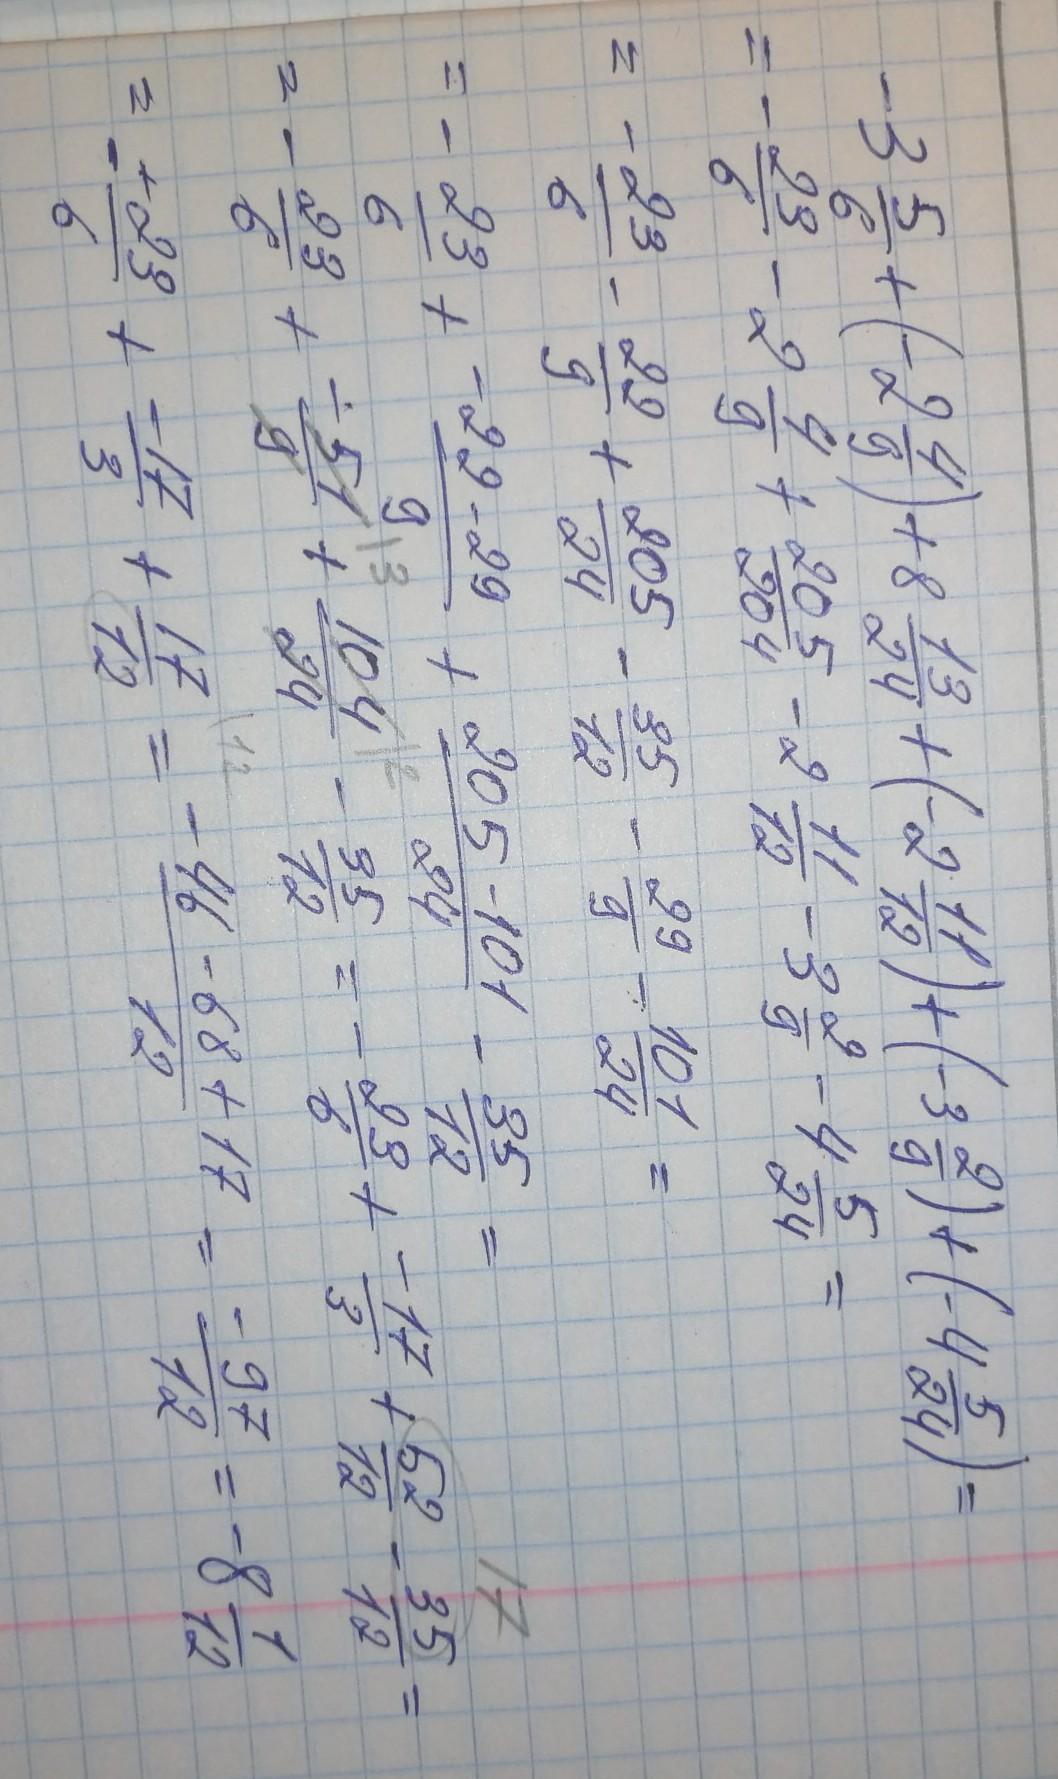 -3 5/6 + (-2 4/9) + 8 13/24 + (-2 11/12) + (-3 2/9) + (-4 5/24) =
= - 23/6 - 2 4/9 + 205/204 - 2 11/12 - 3 2/9 - 4 5/24 =
= - 23/6 - 22/9 + 205/24 - 35/12 - 29/9 - 101/24 =
= - 23/6 + -22-29/9 + 205-101/24 - 35/12 =
= - 23/6 + -51/9 \3 + 104/24 \2 - 35/12 = - 23/6 + -17/3 + 52/12 - 35/12 =
17
= -23/6 + -17/3 + 17/12 \12 = - 46-68+17/12 = -97/12 = -8 1/12